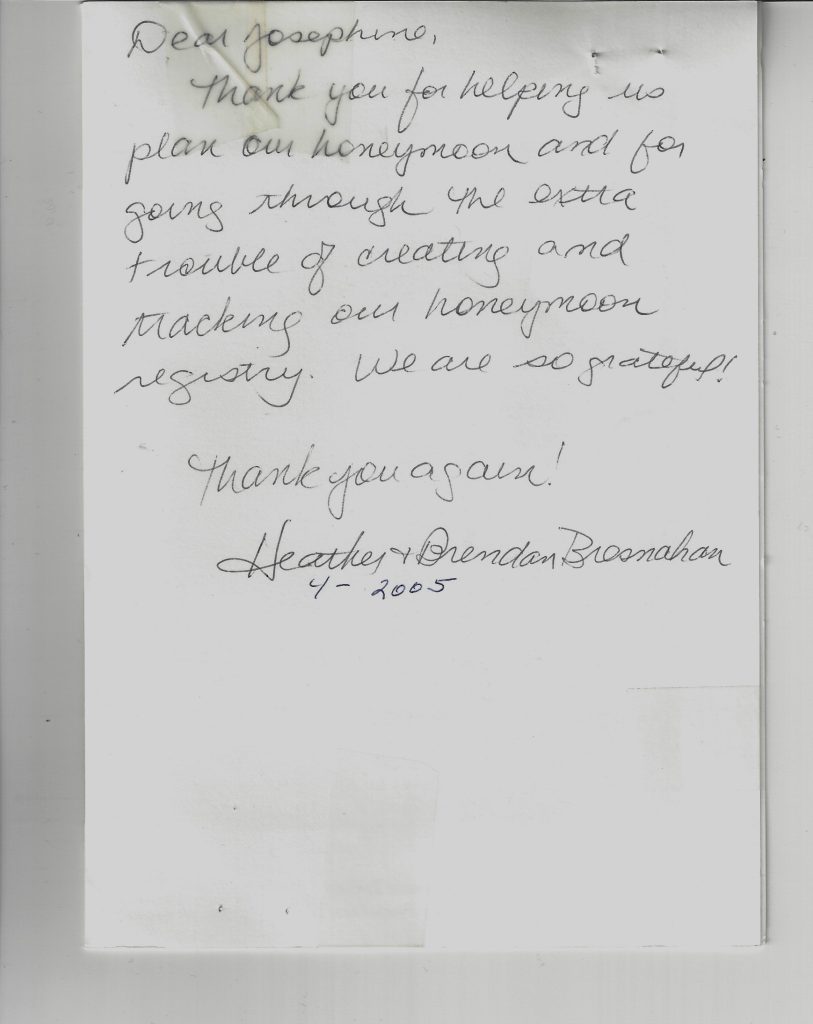 Dear Josephine,
Thank you for helping us
plan our honeymoon and for
going through the extra
trouble of creating and
tracking our honeymoon
registry. We are so grateful!
Thank you again!
Heather + Brendan Brosnahan
4- 2005